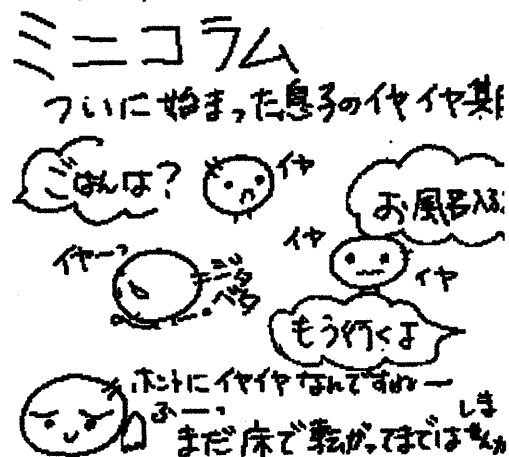 ミニコラム
ついに始まった息子のイヤイヤ期
ごはんは?
イヤ
お風呂入ろ
イヤ
イヤ
イヤーっ
ジタ
バタ
もう行くよ
ホントにイヤイヤなんですねー
ふーっ
まだ床で転がってまではしませんが